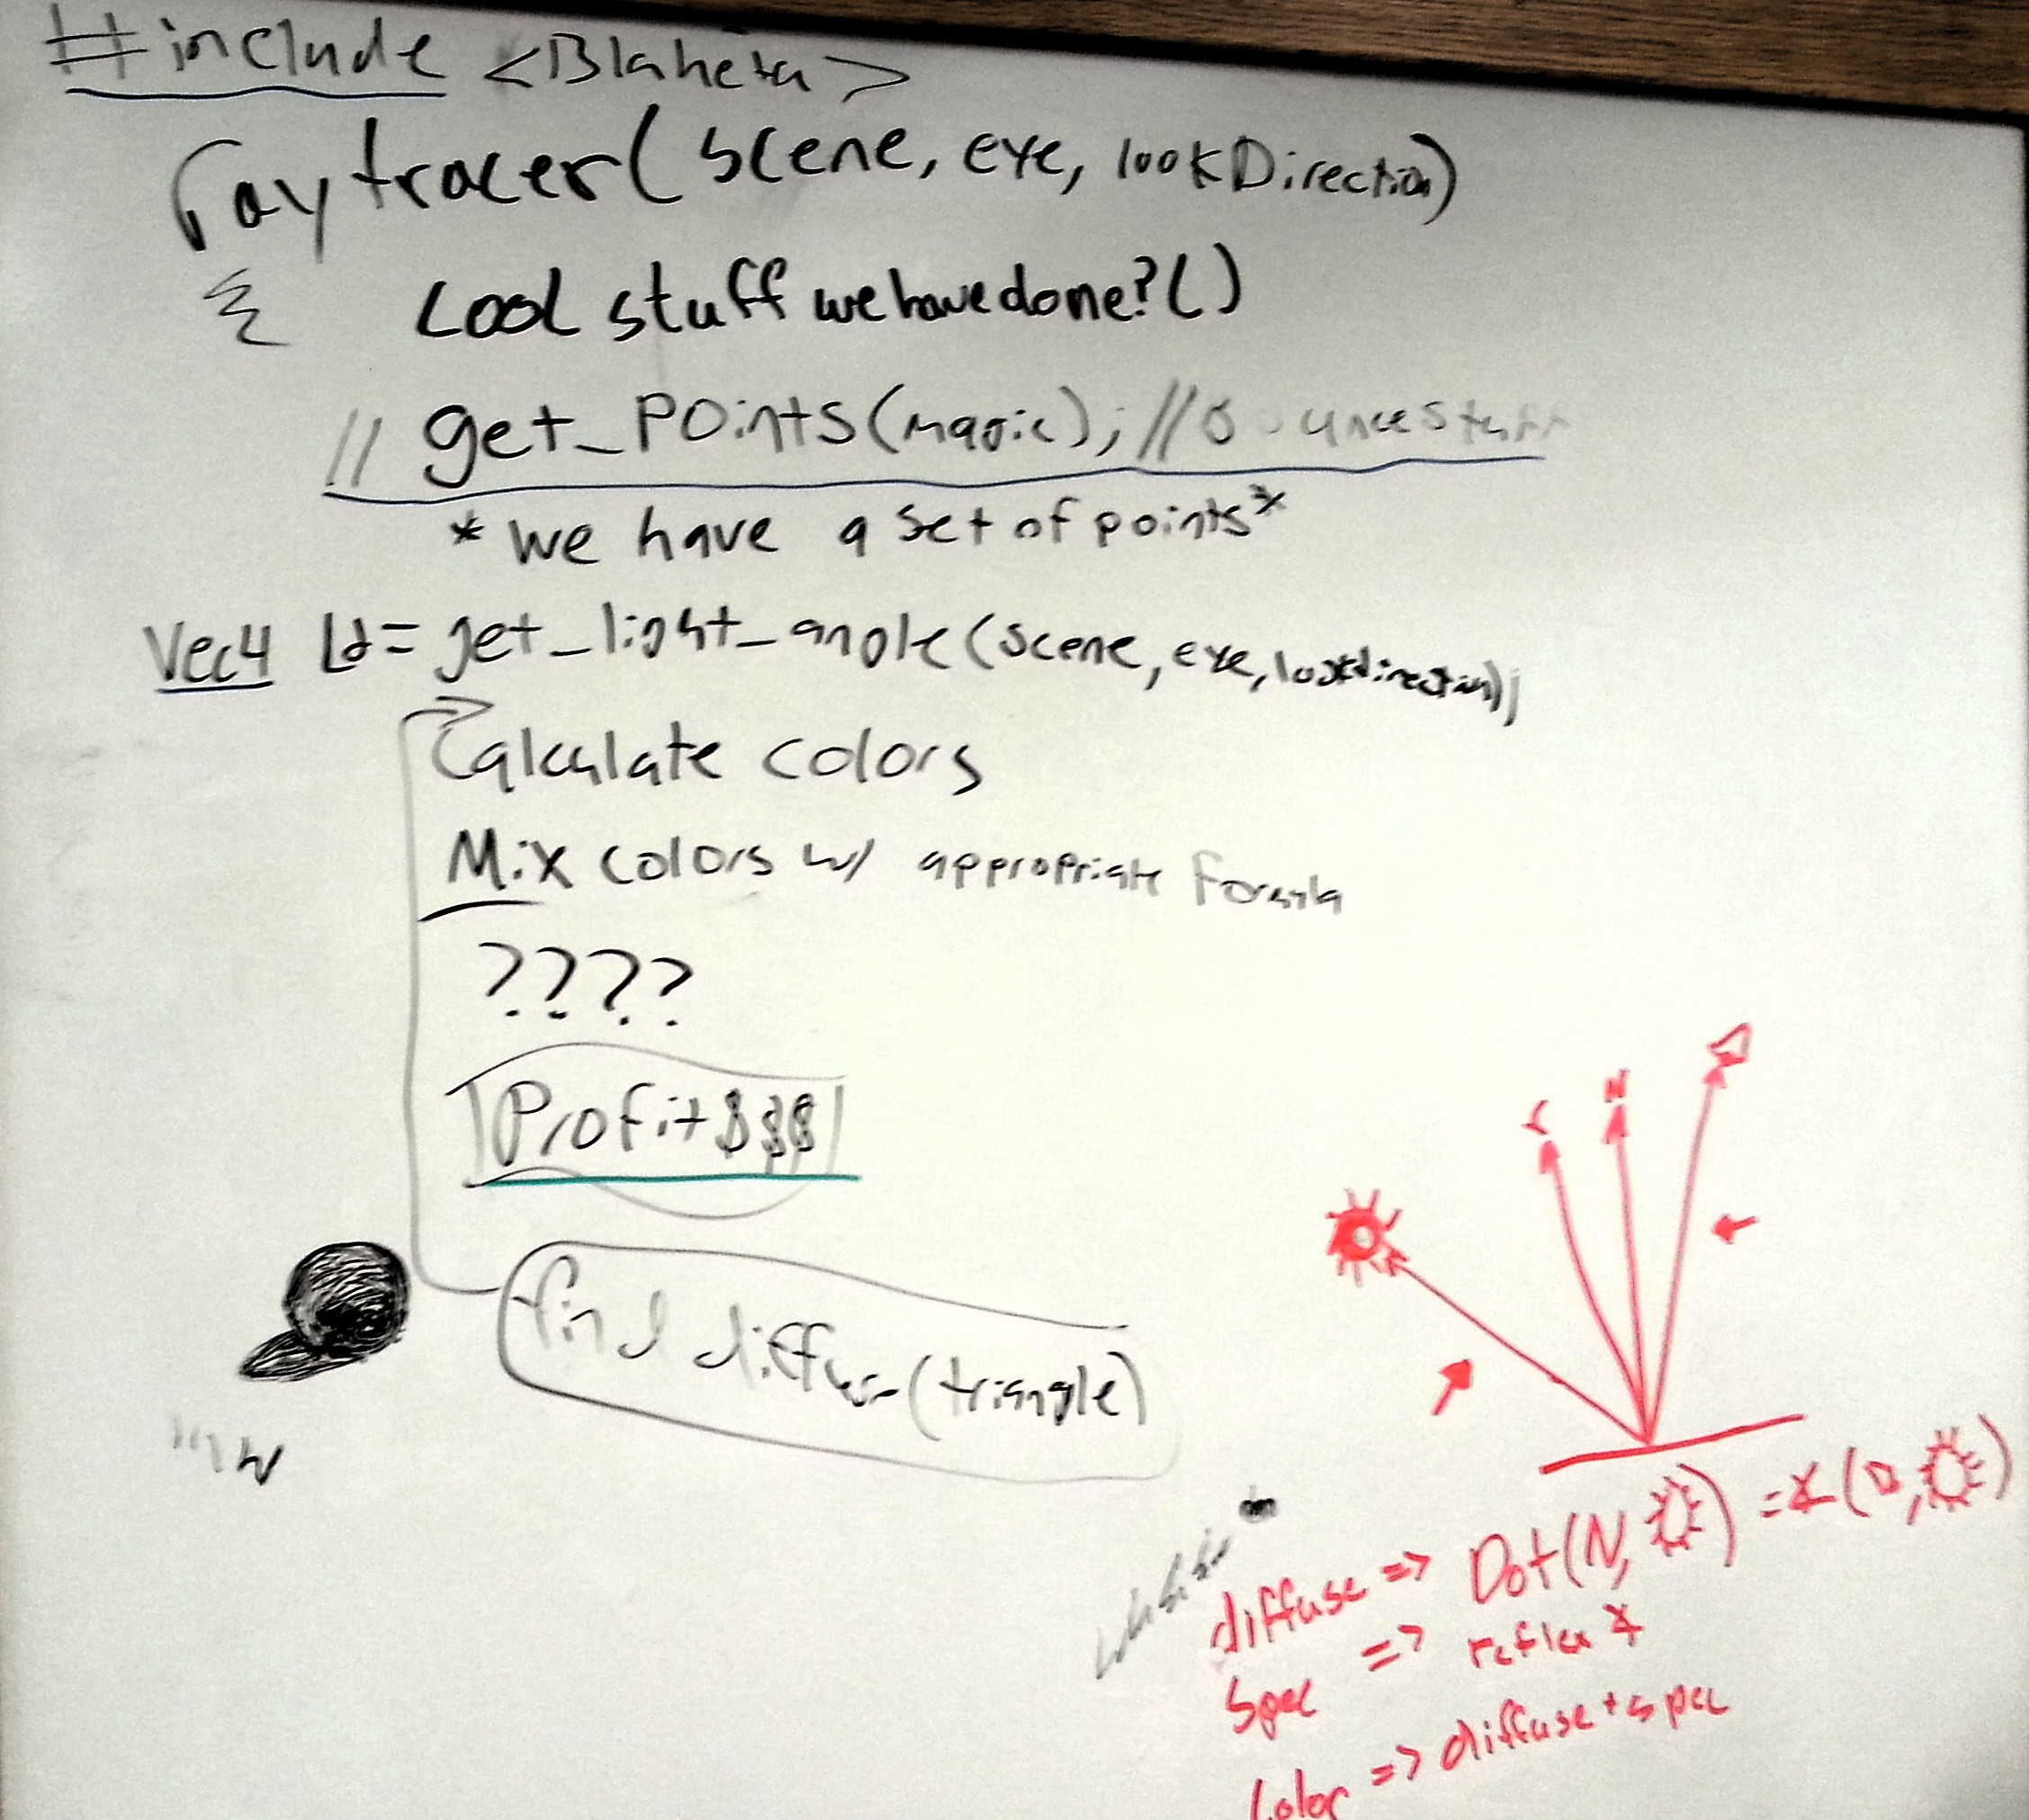 #include <Blaheta>
raytracer(scene, eye, lookDirection)
{ Cool stuff we have done?()
// get_points(magic); //
*we have a set of points*
Vec4 Ld = get_light_angle(scene, eye, lookdirection);
Calculate colors
Mix colors w/ appropriate formula
????
Profit $$$
find diffuse(triangle)
N
diffuse => Dot(N, ) =
spec => reflex
Color => diffuse + spec